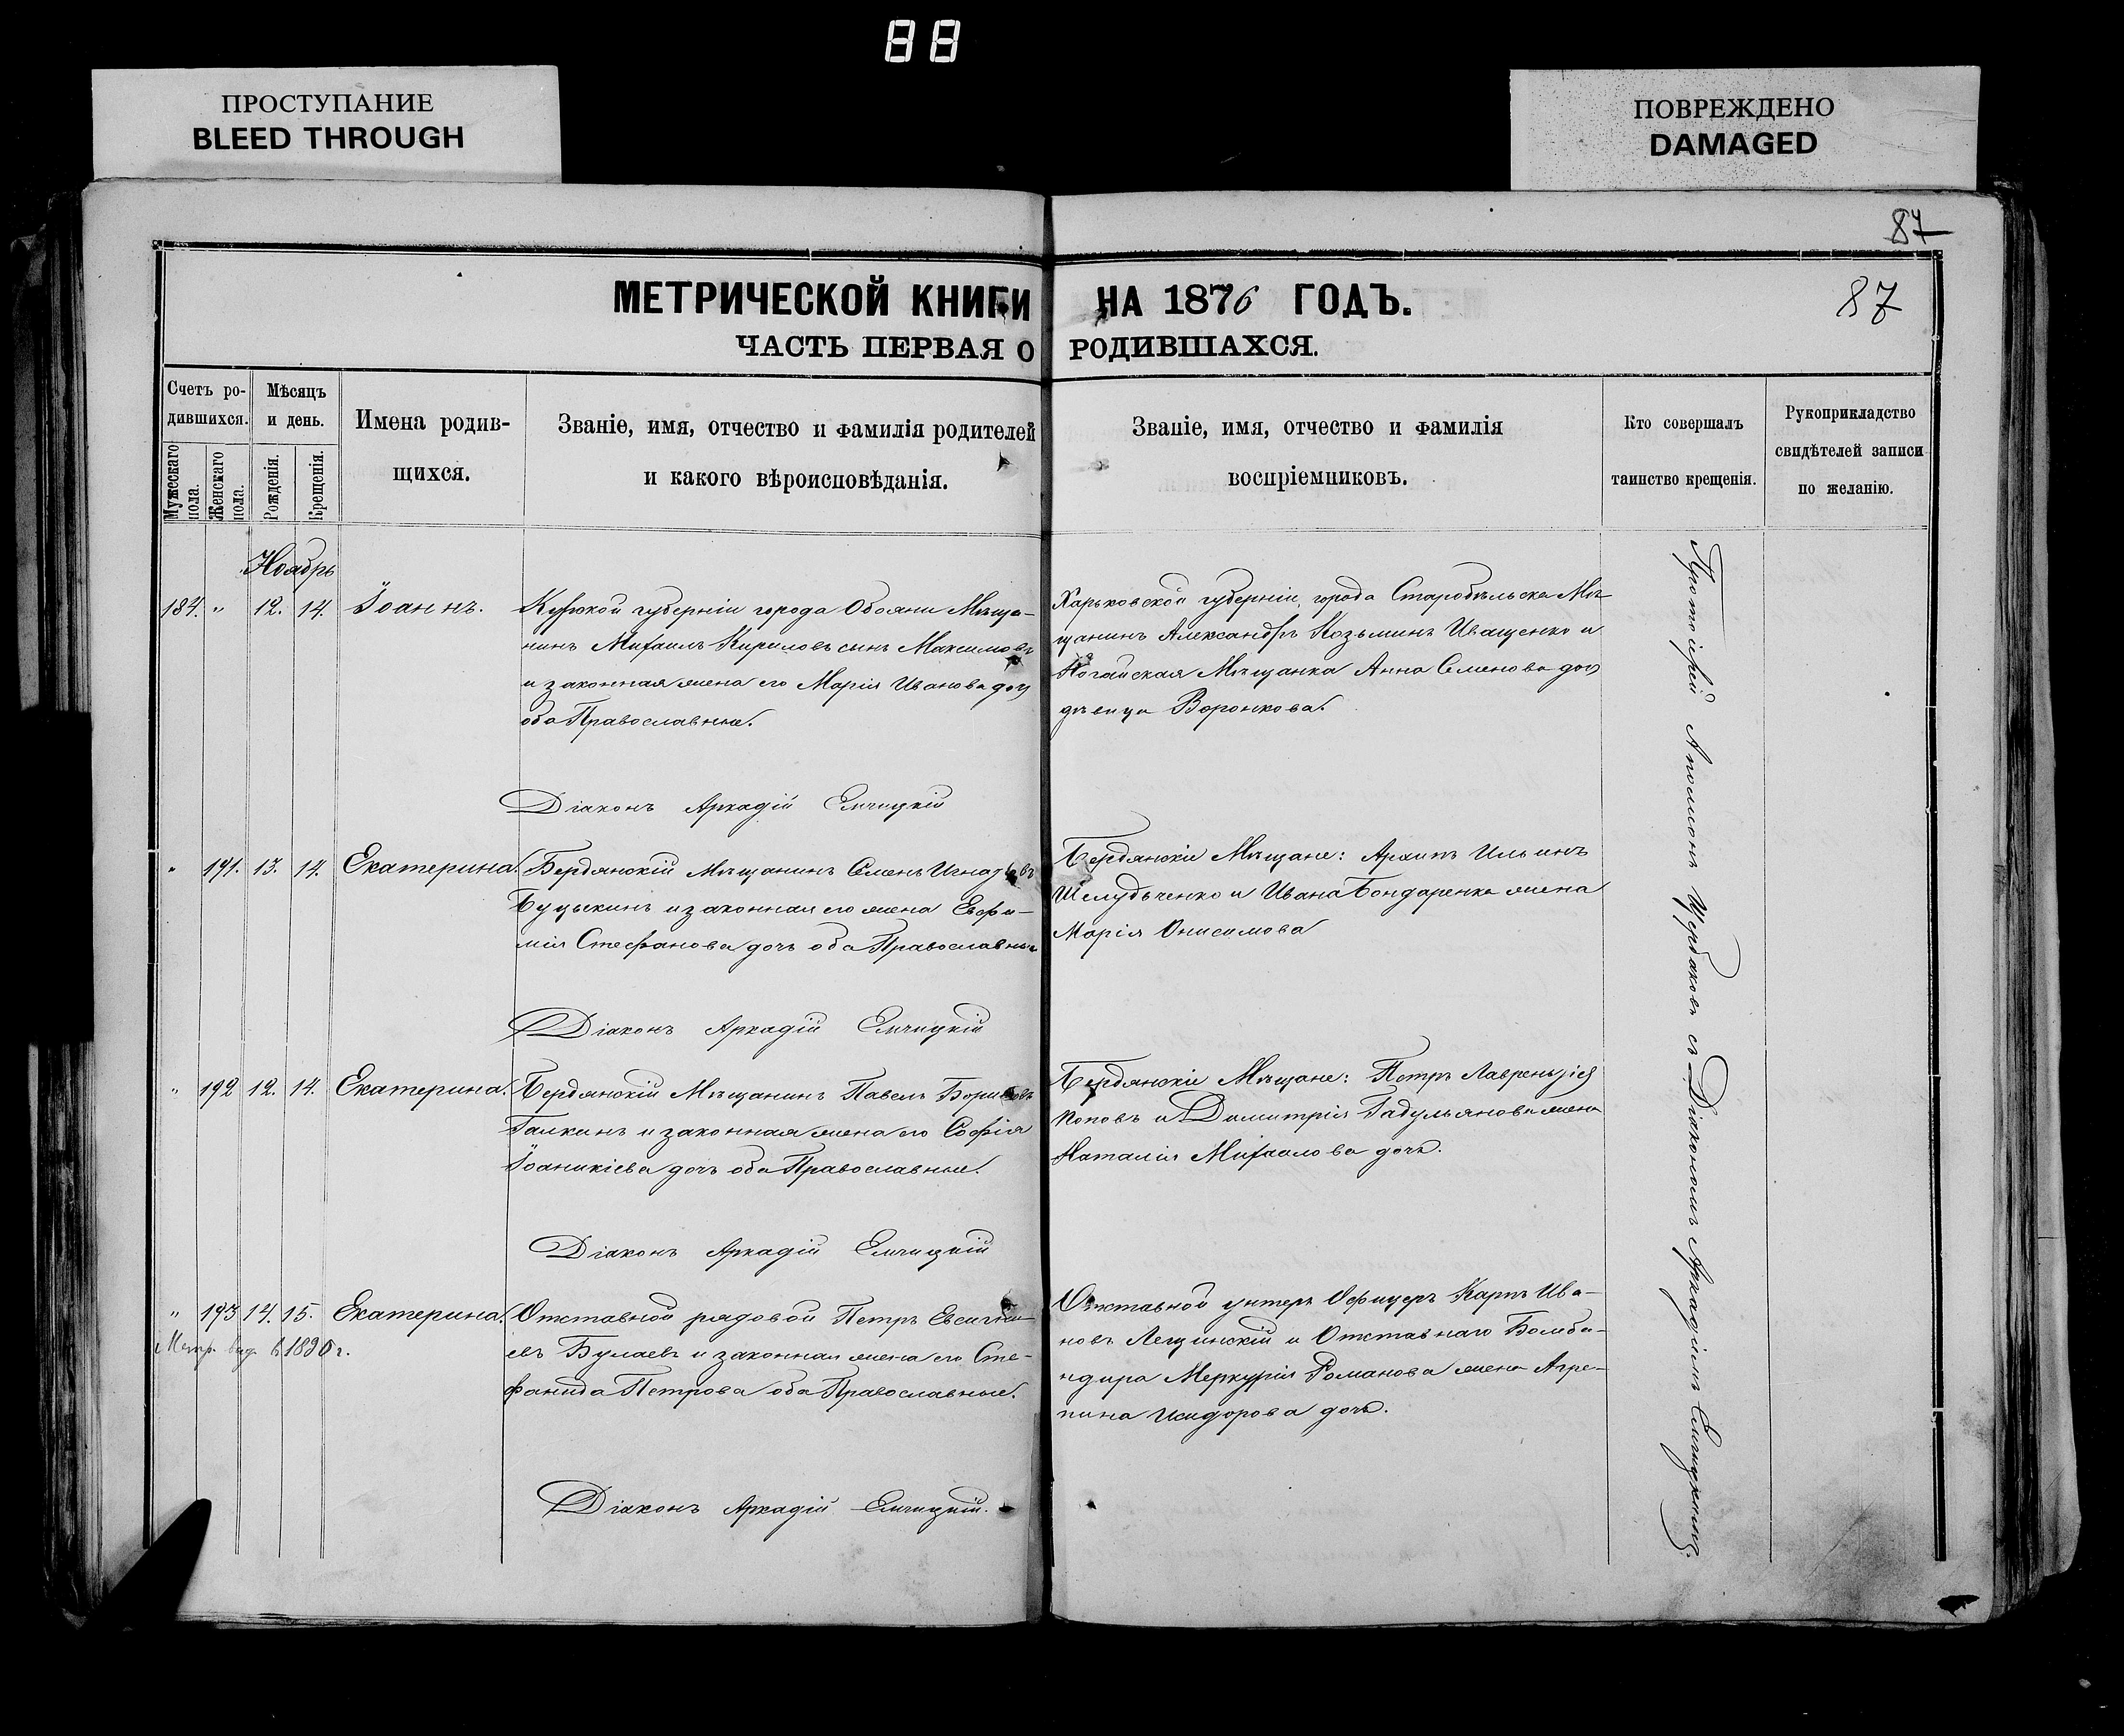 88
ПРОСТУПАНИЕ
BLEED THROUGH
ПОВРЕЖДЕНО
DAMAGED
87
87
МЕТРИЧЕСКОЙ КНИГИ НА 1876 ГОДЪ.
ЧАСТЬ ПЕРВАЯ О РОДИВШАХСЯ.
Счетъ ро-
дившихся.
Мужескаго пола.
Женскаго пола.
Мѣсяцъ
и день.
Рожденія.
Крещенія.
Имена родив-
щихся.
Званіе, имя, отчество и фамилія родителей
и какого вѣроисповѣданія.
Званіе, имя, отчество и фамилія
воспріемниковъ.
Кто совершалъ
таинство крещенія.
Рукоприкладство
свидѣтелей записи
по желанію.
Ноябрь
184. " 12. 14. Іоаннъ.
Курской губерніи города Обояни Мѣща-
нинъ Михаилъ Кириловъ сынъ Максимовъ
и законная жена его Марія Иванова доч
оба Православные.
Харьковской губерніи, города Старобѣльска Мѣ-
щанинъ Александръ Козьминъ Иващенко и
Ногайская Мѣщанка Анна Семенова доч
дѣвица Воронкова.
Діаконъ Аркадій Емчицкій
" 191. 13. 14. Екатерина.
Бердянскій Мѣщанинъ Семенъ Игнатьевъ
Буцыкинъ и законная его жена Евфи-
мія Стефанова дочь оба Православные
Бердянскіе Мѣщане: Архипъ Ильинъ
Шелудьченко и Ивана Бондаренка жена
Марія Онисимова
Діаконъ Аркадій Емчицкій
" 192 12. 14. Екатерина.
Бердянскій Мѣщанинъ Павелъ Борисовъ
Галкинъ и законная жена его Софія
Іоаникіева дочь оба Православные.
Бердянскіе Мѣщане: Петръ Лаврентіев
Поповъ и Димитрія Гадульянова жена
Наталія Михайлова дочь.
Діаконъ Аркадій Емчицкій
" 193 14. 15. Екатерина.
Метр. выд. в 1890 г.
Отставной рядовой Петръ Евсигни-
евъ Булаевъ и законная жена его Сте-
фанида Петрова оба Православные.
Отставной унтеръ Офицеръ Карпъ Ива-
новъ Лещинскій и Отставнаго Бомба-
ндира Меркурія Романова жена Агре-
пина Исидорова дочь.
Діаконъ Аркадій Емчицкій.
Протоіерей Аполлонъ Щербаковъ съ Діакономъ Аркадіемъ Емчицкимъ.